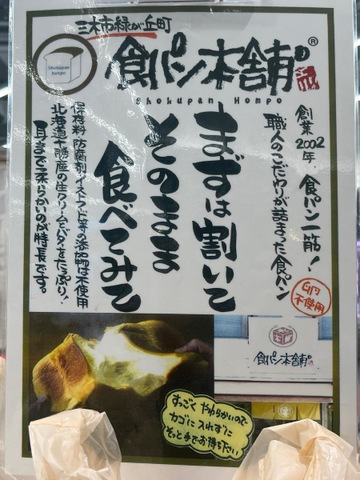 三木市緑が丘町
食パン本舗®
Shokupan Hompo
Shokupan
hompo
創業2002年、食パン一筋!
職人のこだわりが詰まった食パン
卵不使用
まずは割いて
そのまま
食べてみて
保存料・防腐剤・イーストフード等の添加物は不使用
北海道十勝産の生クリームとバターをたっぷり!
耳まで柔らかいのが特長です。
食パン本舗
すっごくやわらかいので
カゴに入れずに
そっと手でお持ち下さい